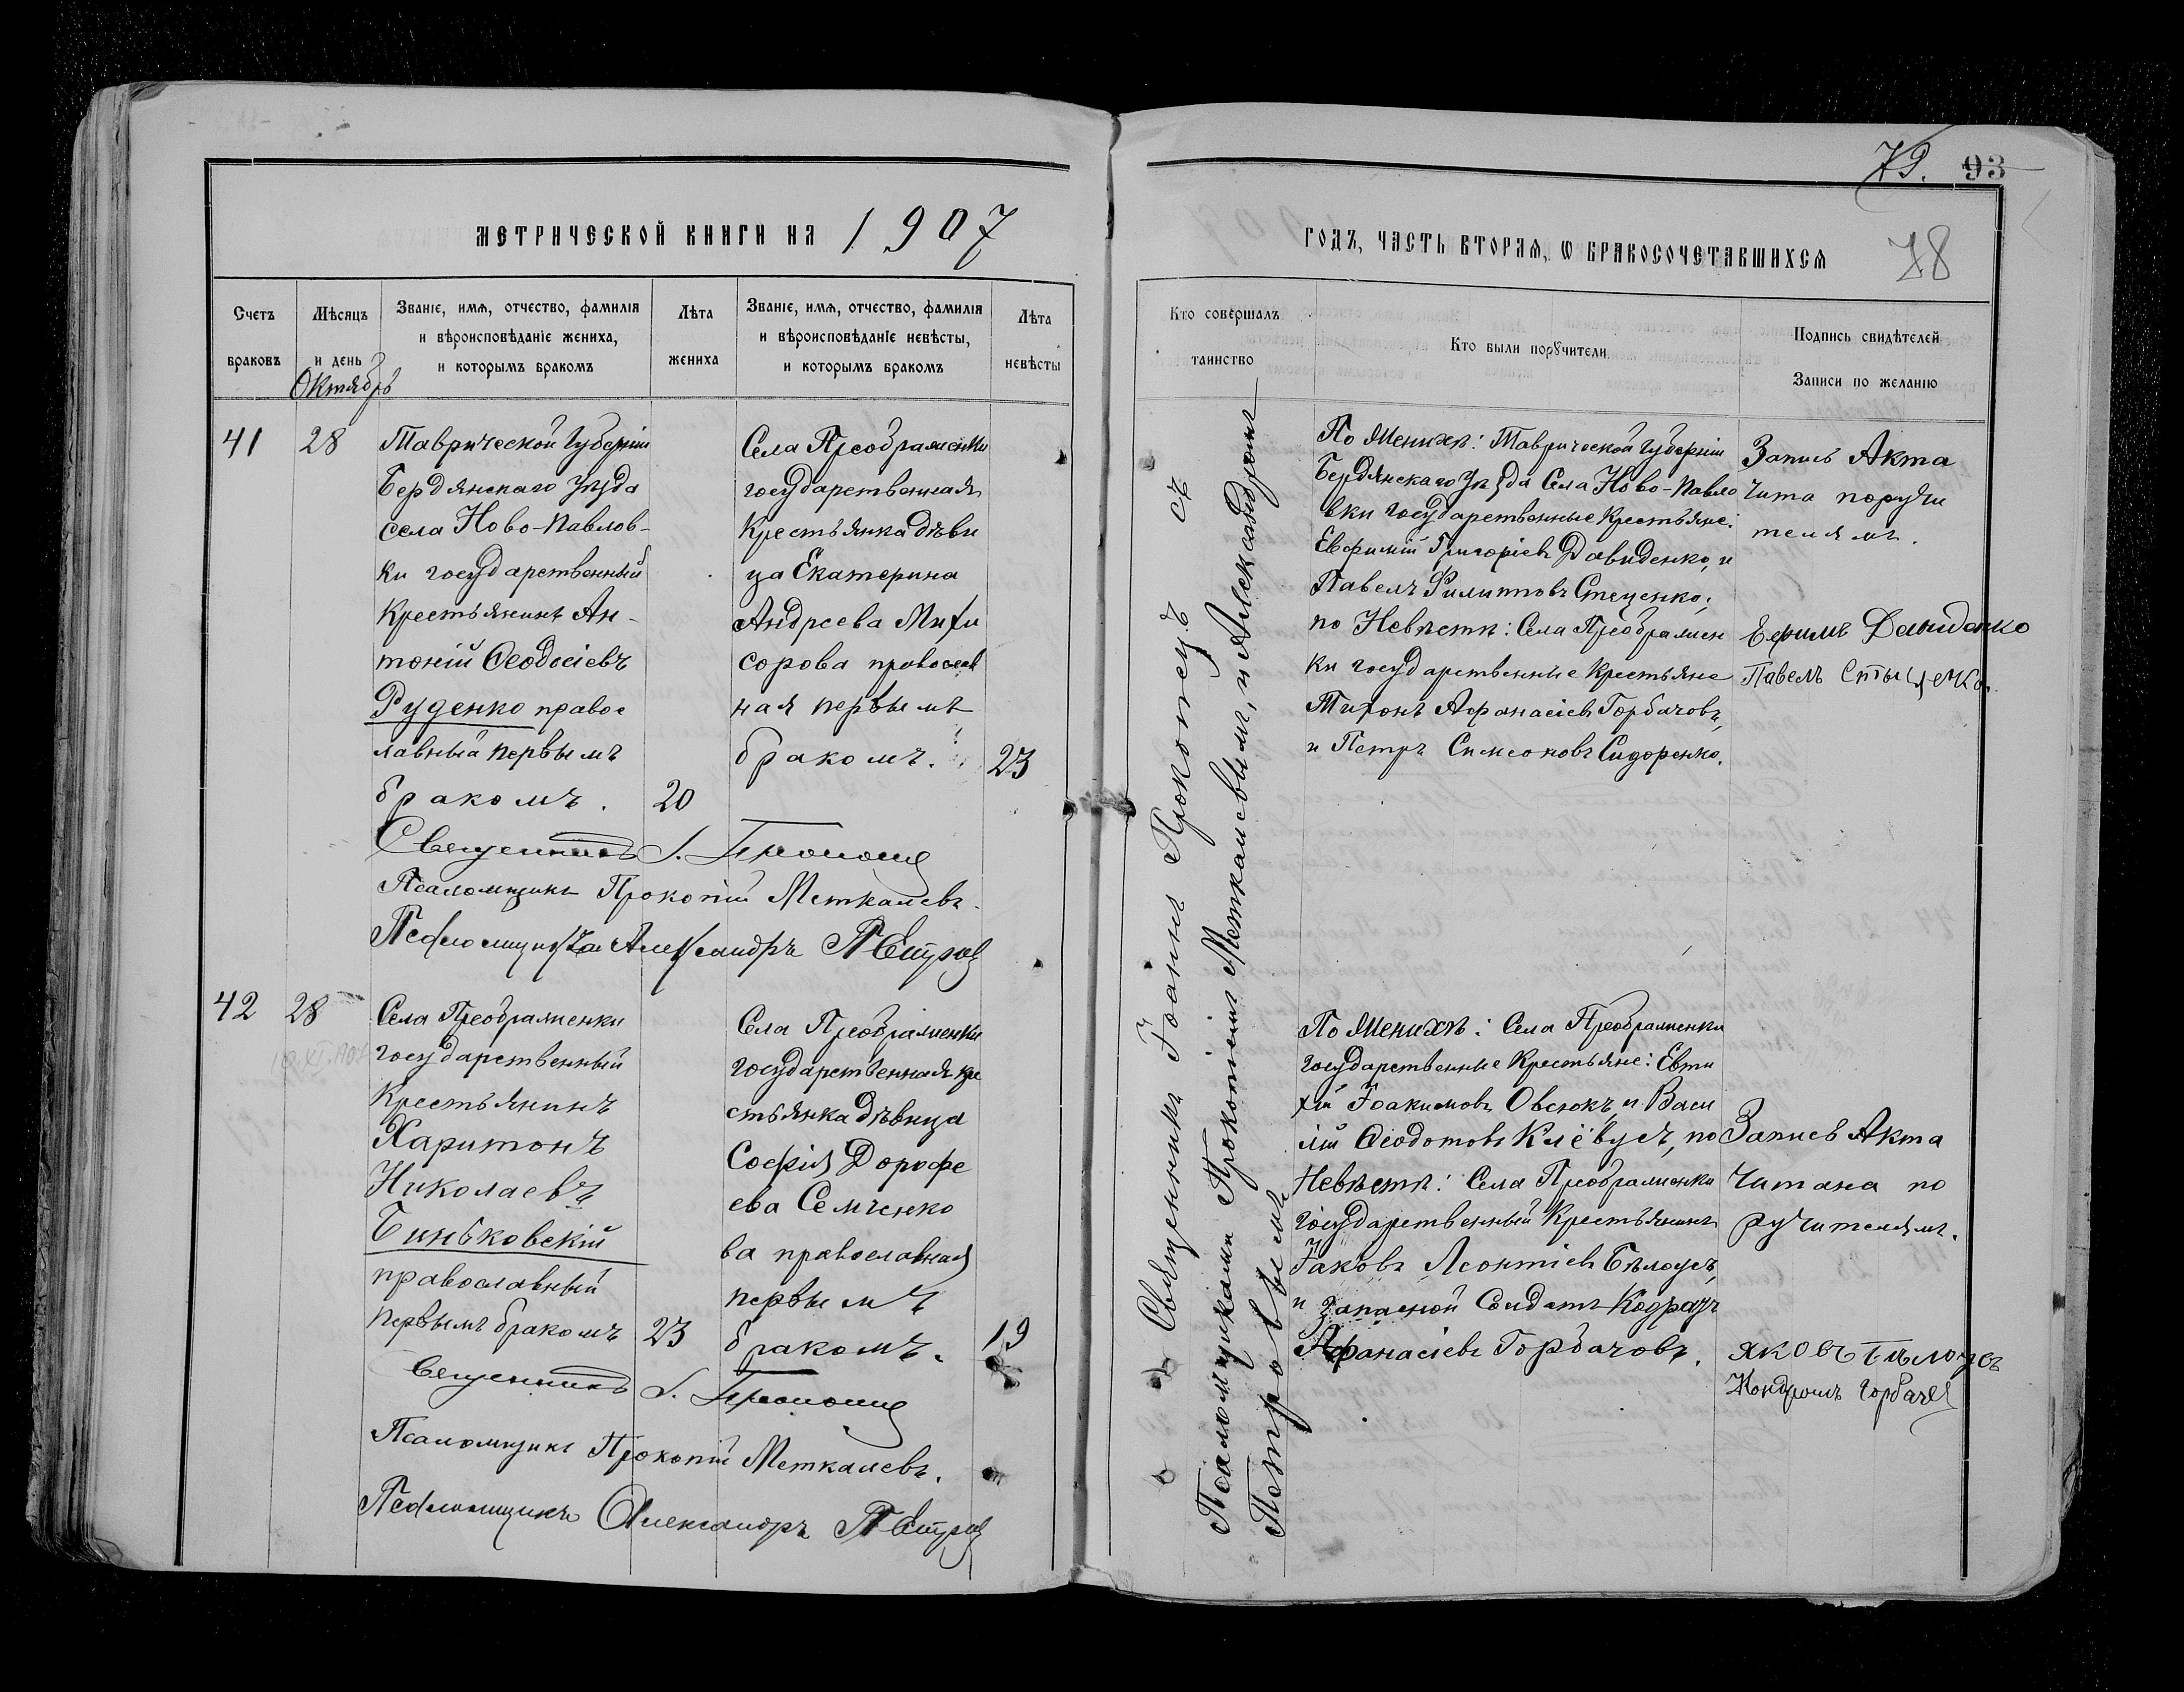 79. 93
МЕТРИЧЕСКОЙ КНИГИ НА 1907
ГОДЪ, ЧАСТЬ ВТОРАЯ, Ѡ БРАКОСОЧЕТАВШИХСЯ 78
Счетъ
браковъ
Мѣсяцъ
и день
Октябрь
Званіе, имя, отчество, фамилія
и вѣроисповѣданіе жениха,
и которымъ бракомъ
Лѣта
жениха
Званіе, имя, отчество, фамилія
и вѣроисповѣданіе невѣсты,
и которымъ бракомъ
Лѣта
невѣсты
Кто совершалъ
таинство
Кто были поручители
Подпись свидѣтелей
Записи по желанію
41
28
Таврической Губерніи
Бердянскаго Уѣзда
села Ново-Павлов-
ки государственный
Крестьянинъ Ан-
тоній Ѳеодосіевъ
Руденко правос
лавный первымъ
бракомъ.
20
Села Преображенки
государственная
Крестьянка дѣви
ца Екатерина
Андреева Михи
сорова православ
ная первымъ
бракомъ.
23
Священникъ І.
Псаломщикъ Прокопій Меткалевъ.
Псаломщикъ Александръ Петровъ
По Женихѣ: Таврической Губерніи
Бердянскаго Уѣзда Села Ново-Павло
вки государственные Крестьяне:
Евфимій Григоріевъ Давиденко, и
Павелъ Филипповъ Стеценко;
по Невѣстѣ: Села Преображен
ки государственные Крестьяне
Тихонъ Афанасіевъ Горбачовъ,
и Петръ Симеоновъ Сидоренко.
Запись Акта
Чита поручи
телямъ.
Ефимъ Давиденко
Павелъ Стыценко.
Священникъ Іоаннъ Прокопецъ съ
Псаломщиками Прокопіемъ Меткалевымъ, и Александромъ
Петровымъ
42
28
Села Преображенки
государственный
Крестьянинъ
Харитонъ
Николаевъ
Биньковскій
православный
первымъ бракомъ
23
Села Преображенки
государственная кре
стьянка дѣвица
Софія Дорофе
ева Семченко
ва православная
первымъ
бракомъ.
19
Священникъ І.
Псаломщикъ Прокопій Меткалевъ.
Псаломщикъ Александръ Петровъ
По Женихѣ: Села Преображенки
государственные Крестьяне: Евти
хій Іоакимовъ Овсюкъ, и Васи
лій Ѳеодотовъ Клёвусъ, по
Невѣстѣ: Села Преображенки
государственный Крестьянинъ
Іаковъ Леонтіевъ Бѣлоусъ,
и запасной Солдатъ Кодратъ
Афанасіевъ Горбачовъ.
Запись Акта
Читана по
ручителямъ.
Яковъ Бѣлоусъ
Кондратъ Горбачев